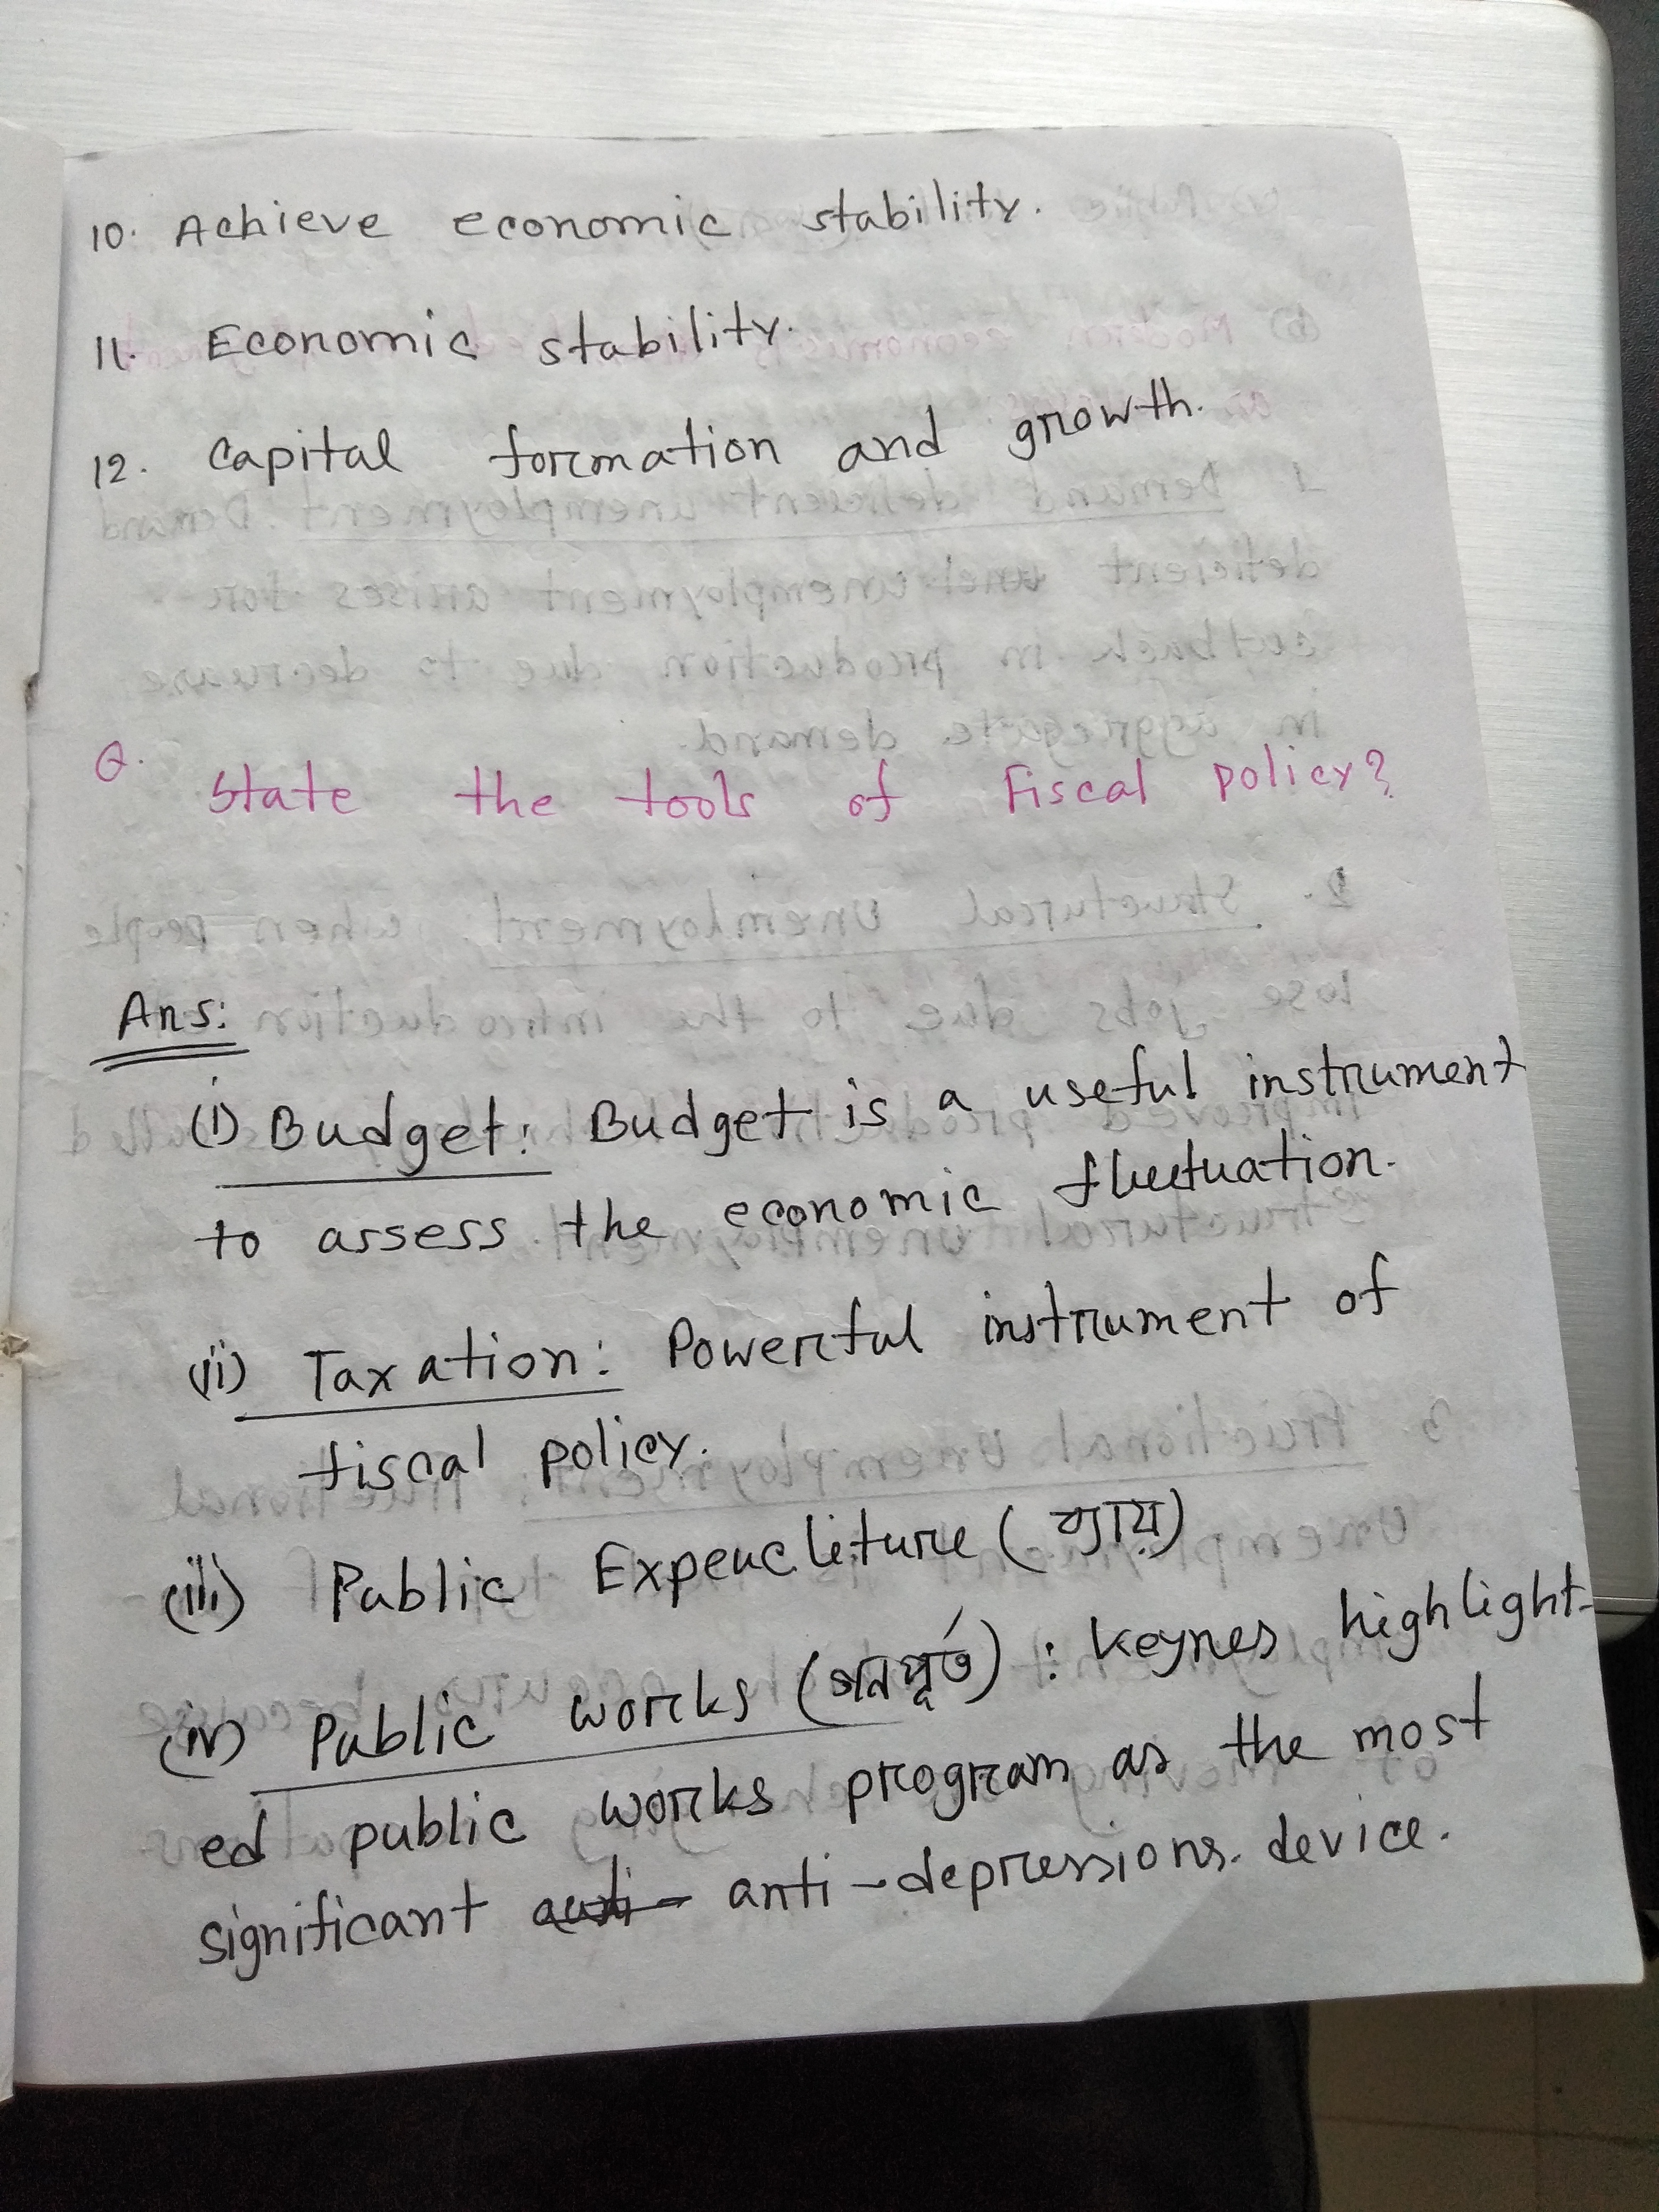 10. Achieve economic stability.
11. Economic stability.
12. Capital formation and growth.
Q. State the tools of Fiscal policy?
Ans:
(i) Budget: Budget is a useful instrument
to assess the economic fluctuation.
(ii) Taxation: Powerful instrument of
fiscal policy.
(iii) Public Expenditure (ব্যায়)
(iv) Public works (গনপূর্ত) : Keynes highlight-
ed public works program as the most
significant anti-depressions device.